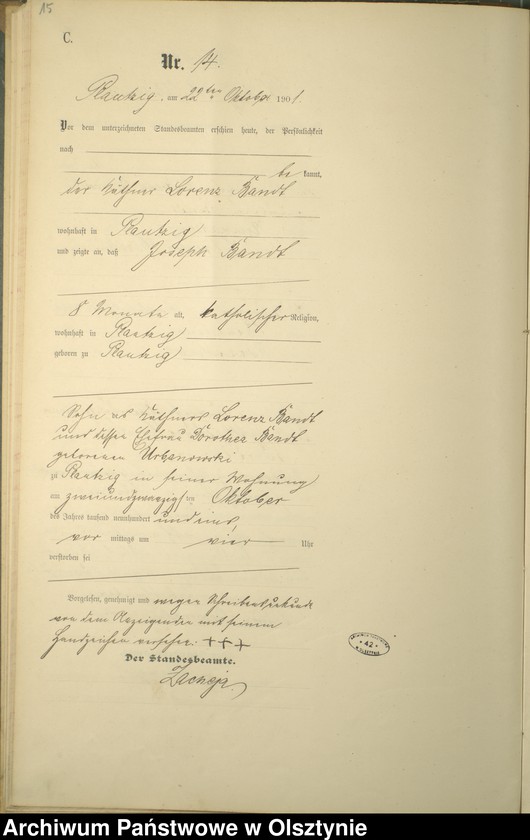 15
C.
Nr. 14.
Plautzig, am 22ten Oktober 1901.
Vor dem unterzeichneten Standesbeamten erschien heute, der Persönlichkeit
nach
be kannt,
der Käthner Lorenz Bandt
wohnhaft in Plautzig
und zeigte an, daß Joseph Bandt
8 Monate alt, katholischer Religion,
wohnhaft in Plautzig
geboren zu Plautzig
Sohn des Käthners Lorenz Bandt
und dessen Ehefrau Dorothea Bandt
geborenen Urbanowski
zu Plautzig in seiner Wohnung
am zweiundzwanzig ten Oktober
des Jahres tausend neunhundert und eins,
vor mittags um vier Uhr
verstorben sei
Vorgelesen, genehmigt und wegen Schreibensunkunde
von dem Anzeigenden mit seinem
Handzeichen versehen. +++
Der Standesbeamte.
42
Archiwum Państwowe w Olsztynie